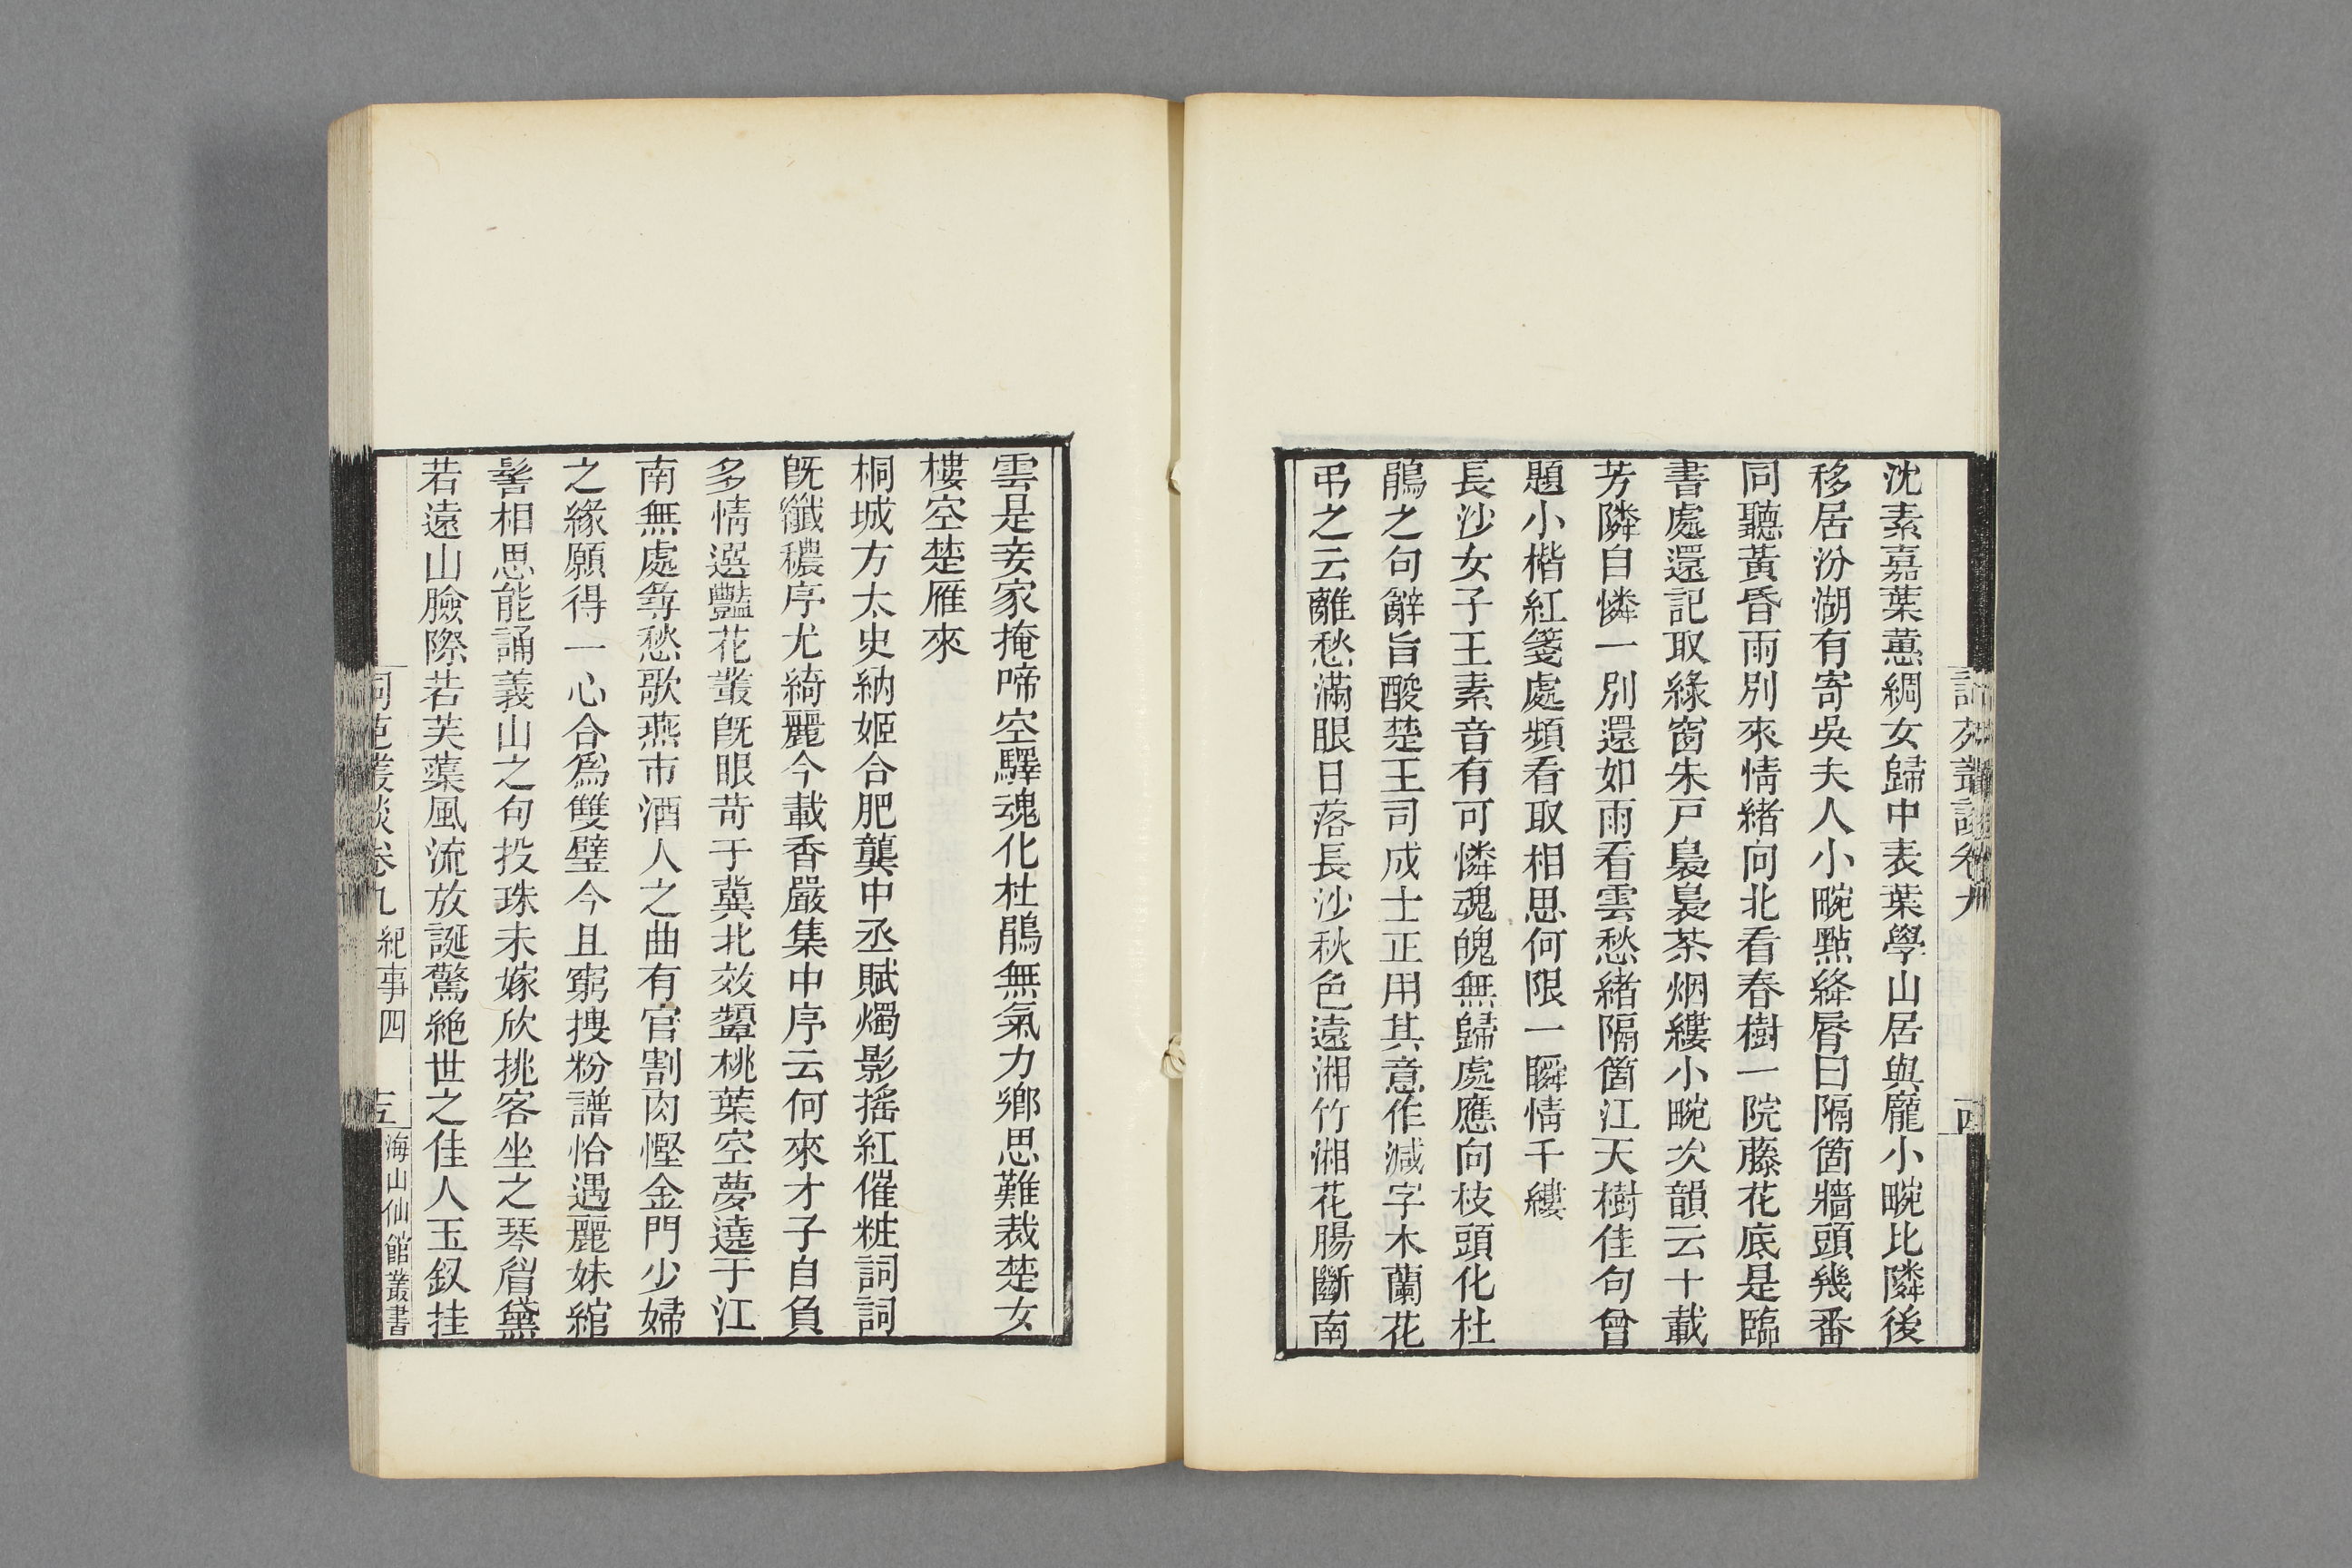 沈素嘉葉蕙綢女歸中表葉學山居與龐小畹比隣後
移居汾湖有寄吳夫人小畹點絳脣曰隔箇牆頭幾番
同聽黃昏雨別來情緒向北看春樹一院藤花底是臨
書處還記取綠窗朱戸裊裊茶烟縷小畹次韻云十載
芳隣自憐一別還如雨看雲愁緒隔箇江天樹佳句曾
題小楷紅箋處頻看取相思何限一瞬情千縷
長沙女子王素音有可憐魂魄無歸處應向枝頭化杜
鵑之句辭旨酸楚王司成士正用其意作減字木蘭花
弔之云離愁滿眼日落長沙秋色遠湘竹湘花腸斷南
雲是妾家掩啼空驛魂化杜鵑無氣力鄉思難裁楚女
樓空楚雁來
桐城方太史納姬合肥龔中丞賦燭影搖紅催粧詞詞
旣纖穠序尤綺麗今載香嚴集中序云何來才子自負
多情選豔花叢旣眼苛于冀北效顰桃葉空夢遶于江
南無處尋愁歌燕市酒人之曲有官割肉慳金門少婦
之緣願得一心合爲雙璧今且窮搜粉譜恰遇麗姝綰
髻相思能誦義山之句投珠未嫁欣挑客坐之琴眉黛
若遠山臉際若芙蕖風流放誕驚絶世之佳人玉釵挂
詞苑叢談卷九 紀事四 海山仙館叢書